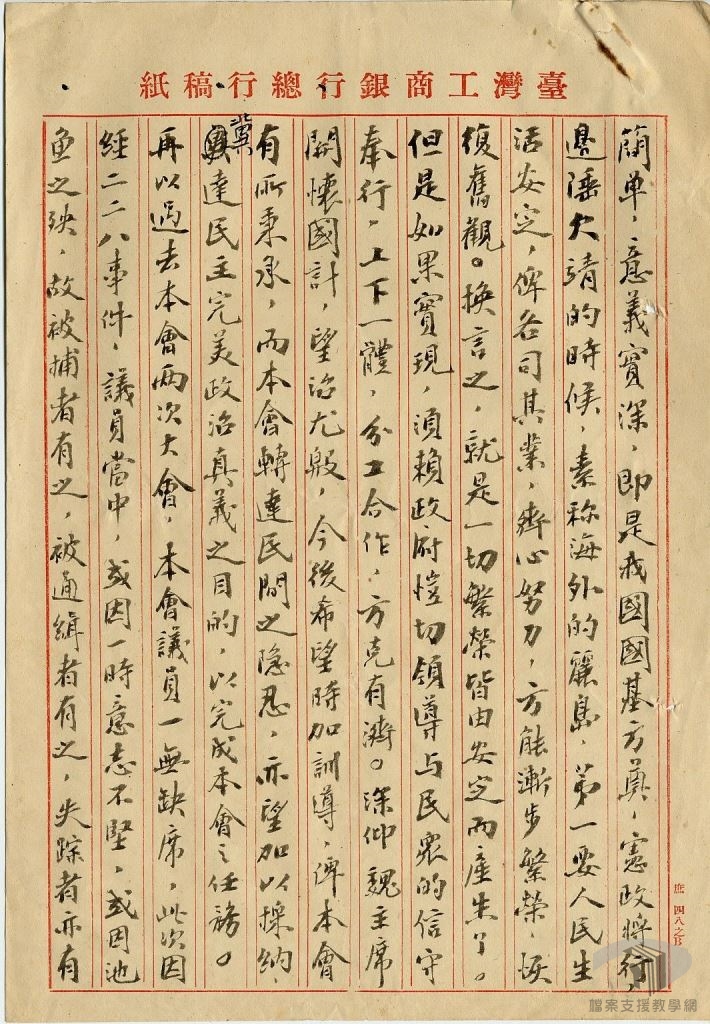 紙稿行總行銀商工灣臺
簡单，意義實深，即是我國國基方奠，憲政將行，
邊陲大靖的時候，素称海外的麗島，第一要人民生
活安定，俾各司其業，齊心努力，方能漸步繁榮，恢
復舊觀。換言之，就是一切繁榮皆由安定而產生了。
但是如果實現，須賴政府愷切領導与民衆的信守
奉行，上下一體，分工合作，方克有濟。深仰魏主席
關懷國計，望治尤殷，今後希望時加訓導，俾本會
有所秉承，而本會轉達民間之隐忍，亦望加以採納，
冀達民主完美政治真義之目的，以完成本會之任務。
再以過去本會两次大會，本會議員一無缺席，此次因
經二二八事件，議員當中，或因一時意志不堅，或因池
魚之殃，故被捕者有之，被通緝者有之，失踪者亦有
庶 四八之B
檔案支援教學網